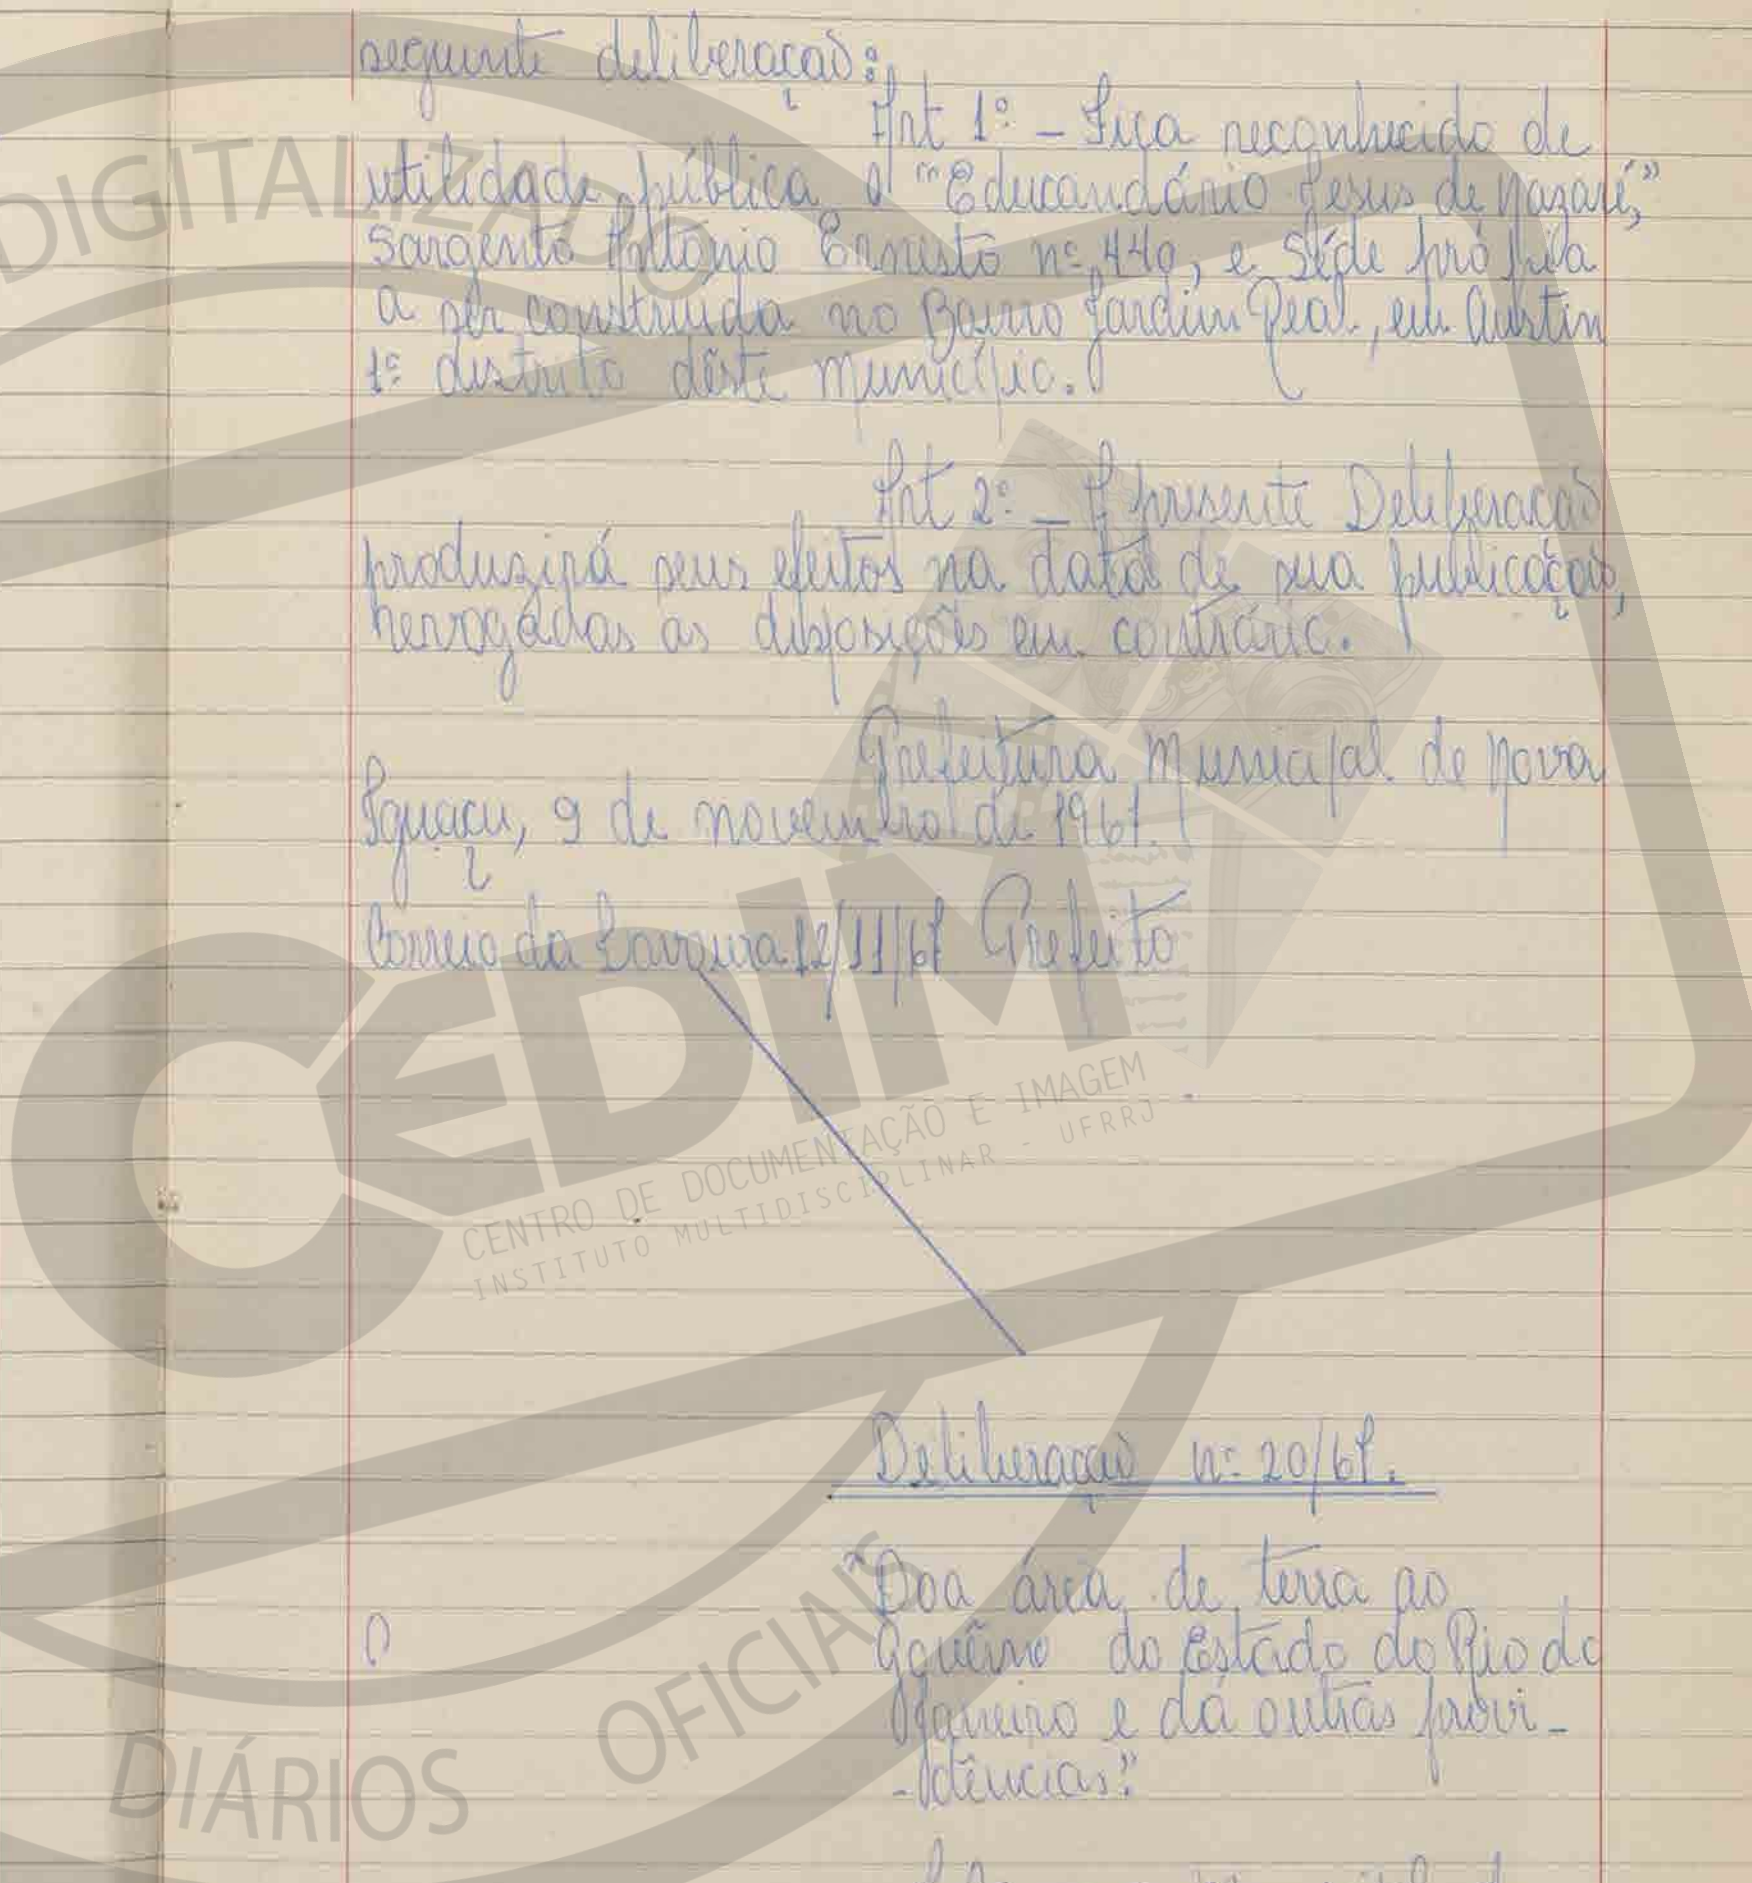 seguinte deliberação:
Art 1º - Fica reconhecido de
utilidade pública o "Educandário Jesus de Nazaré,"
Sargento Antonio Ernesto nº 440, e séde própria
a ser construida no Bairro Jardim Real, em Austin
1º distrito dêste Município.
Art 2º - A presente Deliberação
produzirá seus efeitos na data de sua publicação,
revogadas as disposições em contrário.
Prefeitura Municipal de Nova
Iguaçu, 9 de novembro de 1961.
Correio da Lavoura 12/11/61 Prefeito
Deliberação nº 20/61.
"Doa área de terra ao
Govêrno do Estado do Rio de
Janeiro e dá outras provi-
-dências."
DIGITALIZADO
CEDIM
CENTRO DE DOCUMENTAÇÃO E IMAGEM
INSTITUTO MULTIDISCIPLINAR - UFRRJ
DIÁRIOS OFICIAIS